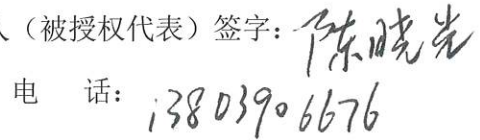 人（被授权代表）签字：陈晓光
电 话：13803906676